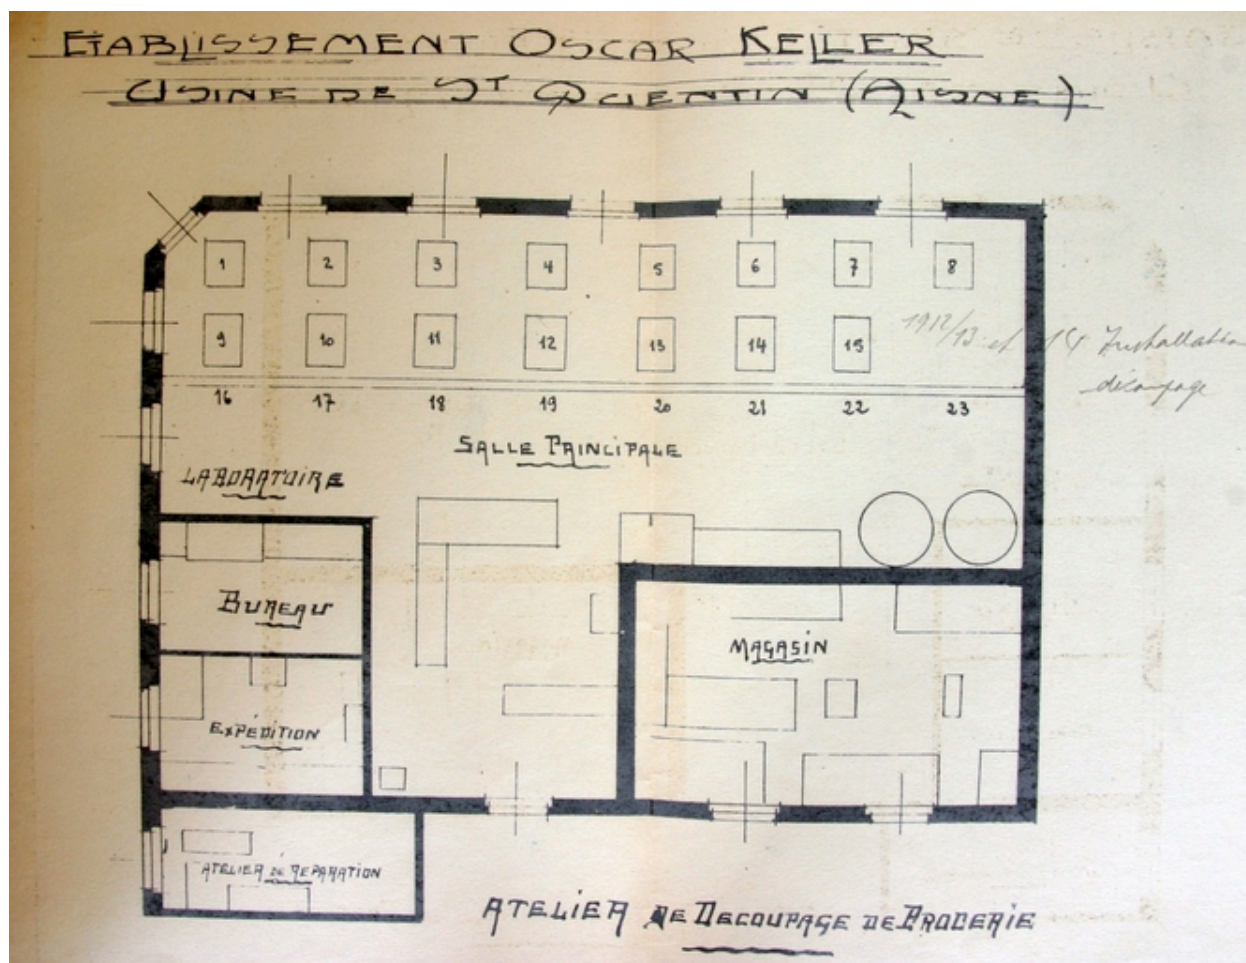 ETABLISSEMENT OSCAR KELLER
USINE DE ST QUENTIN (AISNE)
1 2 3 4 5 6 7 8
9 10 11 12 13 14 15
1912/13 et 14 Installation
découpage
16 17 18 19 20 21 22 23
SALLE PRINCIPALE
LABORATOIRE
BUREAU
MAGASIN
EXPÉDITION
ATELIER DE REPARATION
ATELIER DE DECOUPAGE DE BRODERIE